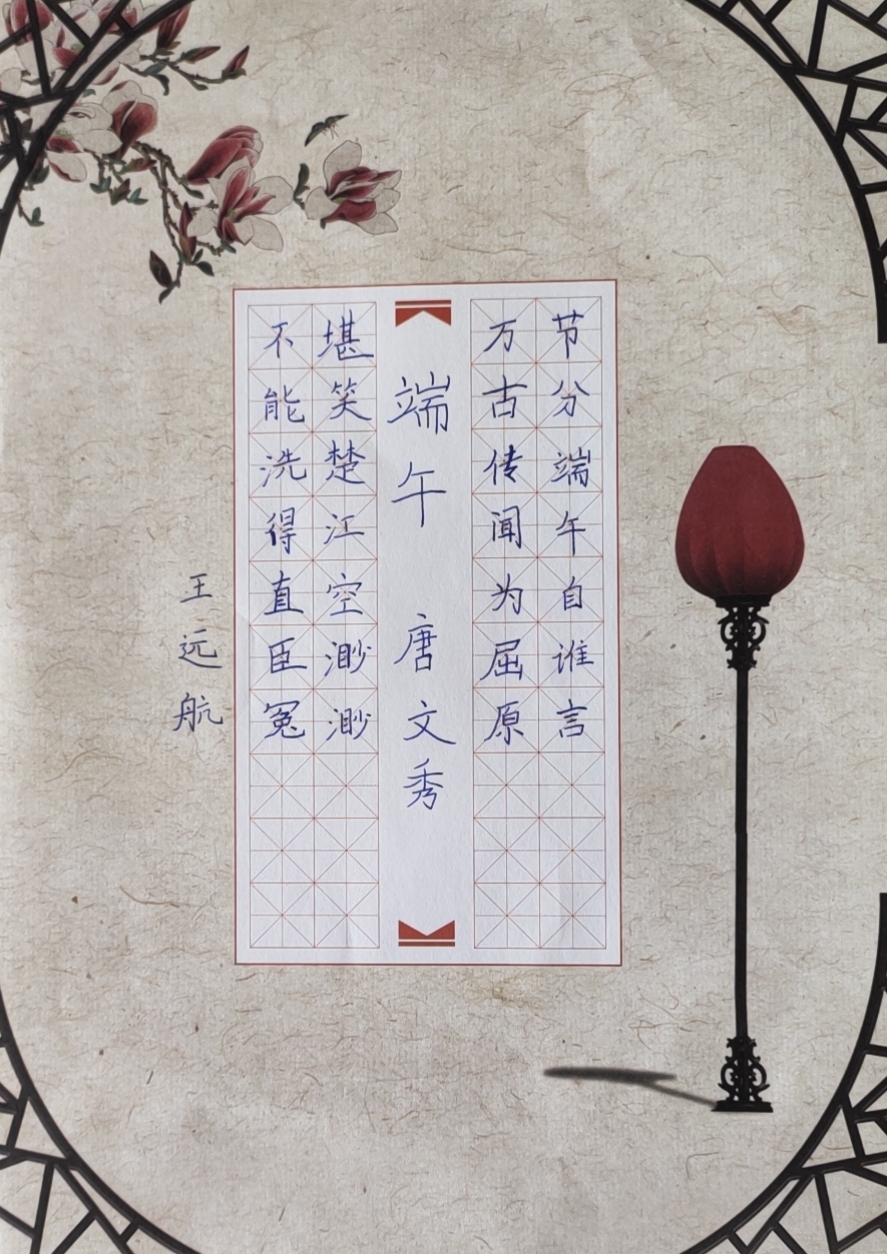 节分端午自谁言
万古传闻为屈原
端午 唐 文秀
堪笑楚江空渺渺
不能洗得直臣冤
王远航